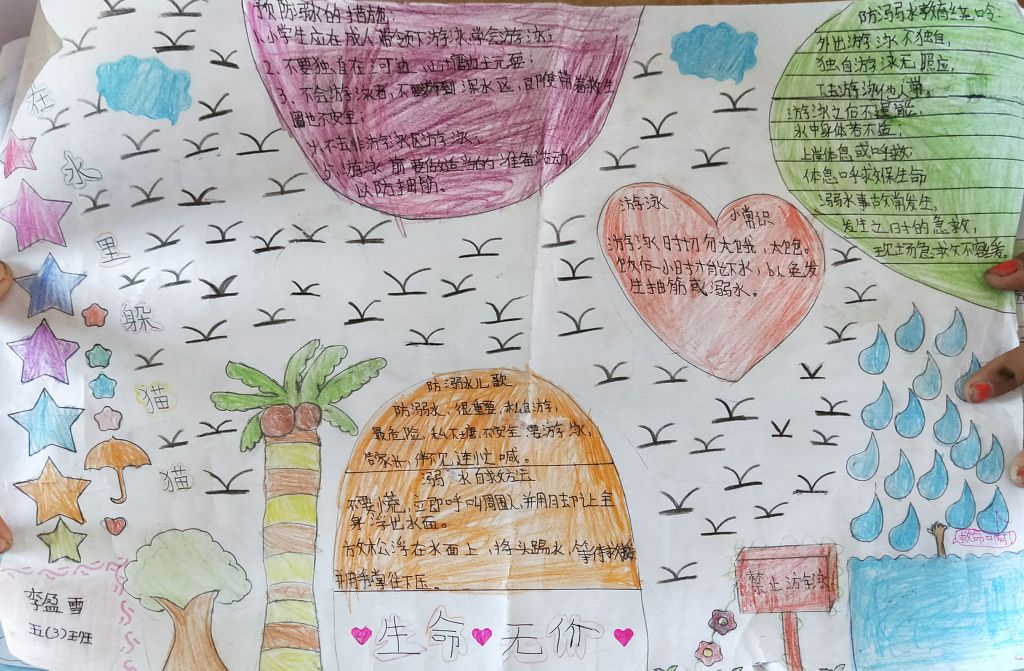 预防溺水的措施:
1、小学生应在成人带领下游泳学会游泳;
2、不要独自在河边、山塘边玩耍;
3、不会游泳者,不要游到深水区,即使带着救生
圈也不安全;
4、不去非游泳区游泳。
5、游泳前要做适当的准备活动,
以防抽筋。
防溺水教育
外出游泳不独自,
独自游泳无照应,
游泳之后不逞能,
水中身体若不适;
上岸休息或呼救;
休息呼救保生命
溺水事故常发生,
发生之时的急救,
现场急救不容缓。
在
水
里
躲
猫
猫
游泳
小常识
游泳时切勿太饿,太饱。
饭后一小时才能下水,以免发
生抽筋或溺水。
防溺水儿歌
防溺水,很重要,私自游,
最危险,私下塘,不安全,要游泳,
告家长,伴不见,连忙喊。
溺水自救方法
不要慌,立即呼叫周围人,并用
身浮出水面。
放松浮在水面上,将头踢水,等待救援
生命无价
禁止游泳
救命啊!
李盈雪
五(3)班